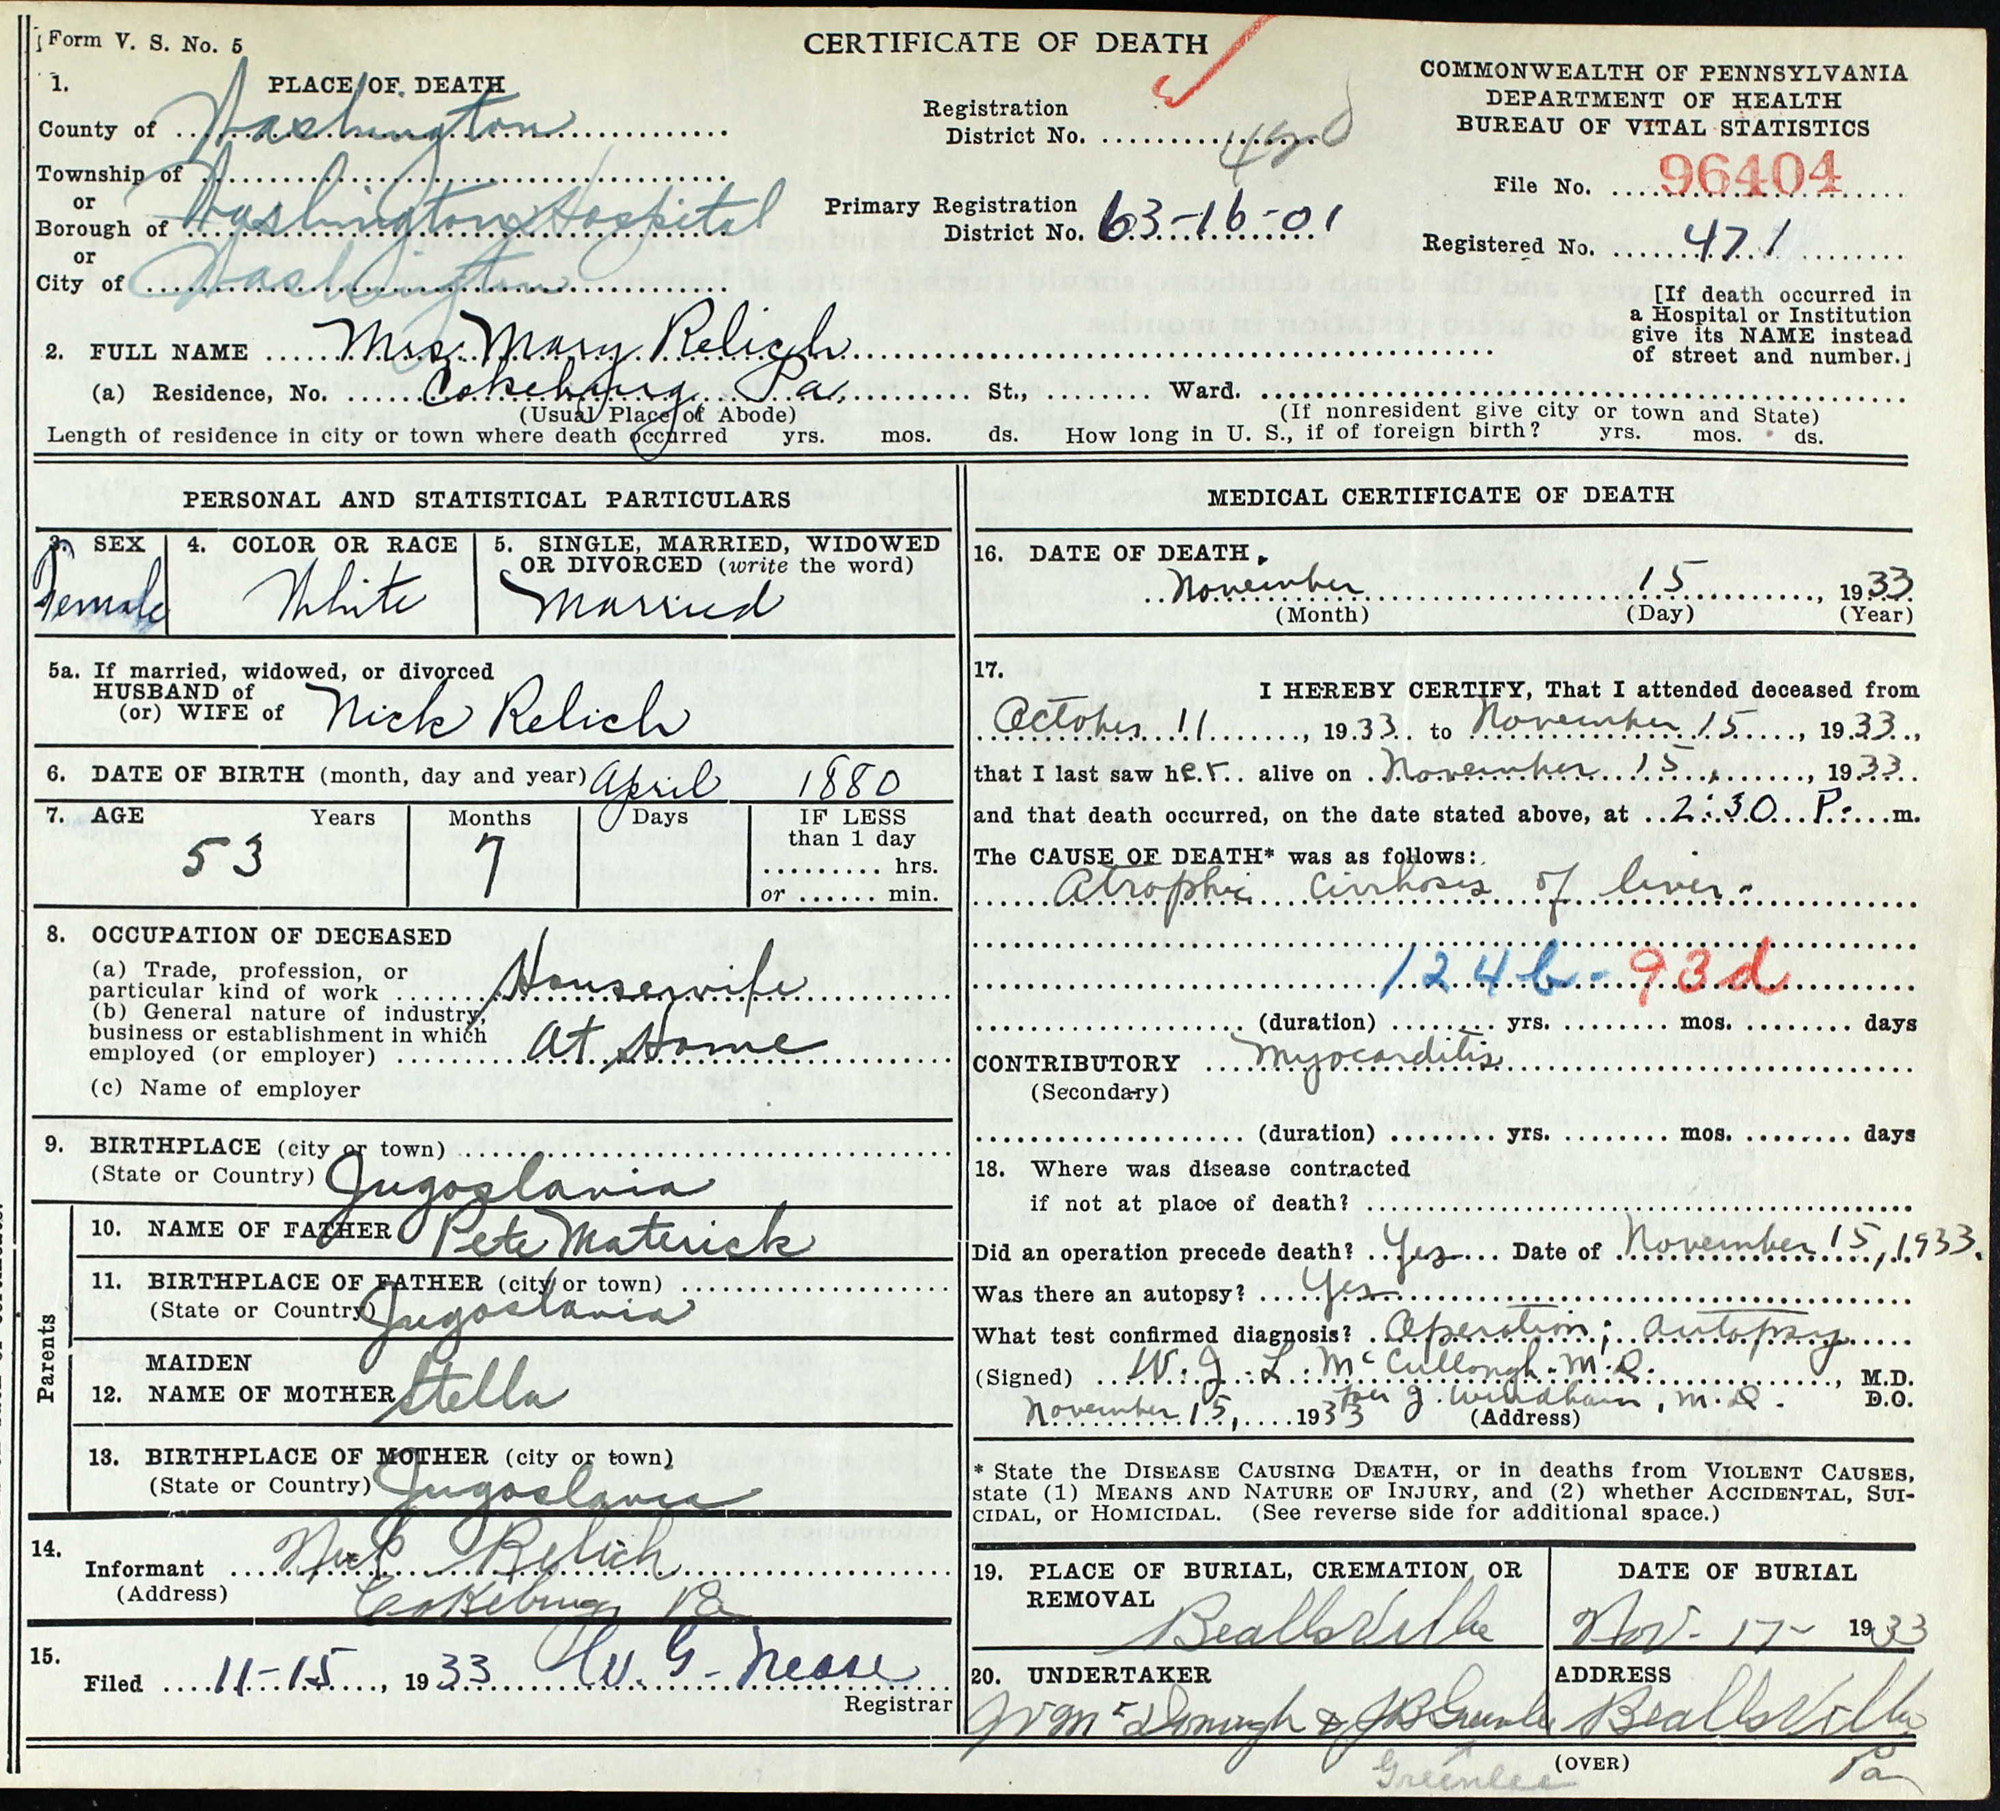 Form V. S. No. 5
CERTIFICATE OF DEATH
1. PLACE OF DEATH
County of Washington
Township of
or
Borough of Washington Hospital
or
City of Washington
Registration
District No.
Primary Registration
District No. 63-16-01
COMMONWEALTH OF PENNSYLVANIA
DEPARTMENT OF HEALTH
BUREAU OF VITAL STATISTICS
File No. 96404
Registered No. 471
[If death occurred in
a Hospital or Institution
give its NAME instead
of street and number.]
2. FULL NAME Mrs Mary Relich
(a) Residence, No. Cokeburg Pa. St., Ward.
(Usual Place of Abode) (If nonresident give city or town and State)
Length of residence in city or town where death occurred yrs. mos. ds. How long in U. S., if of foreign birth? yrs. mos. ds.
PERSONAL AND STATISTICAL PARTICULARS
3. SEX 4. COLOR OR RACE 5. SINGLE, MARRIED, WIDOWED
OR DIVORCED (write the word)
Female White Married
5a. If married, widowed, or divorced
HUSBAND of
(or) WIFE of Nick Relich
6. DATE OF BIRTH (month, day and year) April 1880
7. AGE Years Months Days IF LESS
than 1 day
53 7 hrs.
or min.
8. OCCUPATION OF DECEASED
(a) Trade, profession, or
particular kind of work Housewife
(b) General nature of industry,
business or establishment in which
employed (or employer) At Home
(c) Name of employer
9. BIRTHPLACE (city or town)
(State or Country) Jugoslavia
Parents
10. NAME OF FATHER Pete Materick
11. BIRTHPLACE OF FATHER (city or town)
(State or Country) Jugoslavia
MAIDEN
12. NAME OF MOTHER Stella
13. BIRTHPLACE OF MOTHER (city or town)
(State or Country) Jugoslavia
14.
Informant Nick Relich
(Address) Cokeburg Pa
15.
Filed 11-15, 1933 W. G. Nease
Registrar
MEDICAL CERTIFICATE OF DEATH
16. DATE OF DEATH
November 15, 1933
(Month) (Day) (Year)
17.
I HEREBY CERTIFY, That I attended deceased from
October 11, 1933 to November 15, 1933,
that I last saw her alive on November 15, 1933
and that death occurred, on the date stated above, at 2:30 P. m.
The CAUSE OF DEATH* was as follows:
Atrophic cirrhosis of liver.
124b-93d
(duration) yrs. mos. days
CONTRIBUTORY Myocarditis
(Secondary)
(duration) yrs. mos. days
18. Where was disease contracted
if not at place of death?
Did an operation precede death? Yes Date of November 15, 1933.
Was there an autopsy? Yes
What test confirmed diagnosis? Operation; autopsy
(Signed) W. J. L. McCullough. M.D., M.D.
D.O.
per J. Windham, M.D.
November 15, 1933 (Address)
* State the DISEASE CAUSING DEATH, or in deaths from VIOLENT CAUSES,
state (1) MEANS AND NATURE OF INJURY, and (2) whether ACCIDENTAL, SUI-
CIDAL, or HOMICIDAL. (See reverse side for additional space.)
19. PLACE OF BURIAL, CREMATION OR
REMOVAL
Beallsville
DATE OF BURIAL
Nov- 17- 1933
20. UNDERTAKER ADDRESS
McDonough & J B Greenlee Beallsville
Greenlee (OVER) Pa